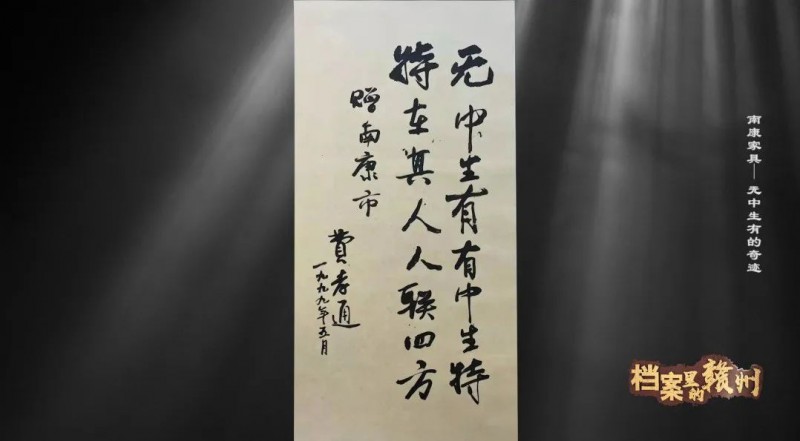 无中生有有中生特
特在其人人联四方
赠南康市
费孝通
一九九九年五月
南康家具——无中生有的奇迹
档案里的赣州